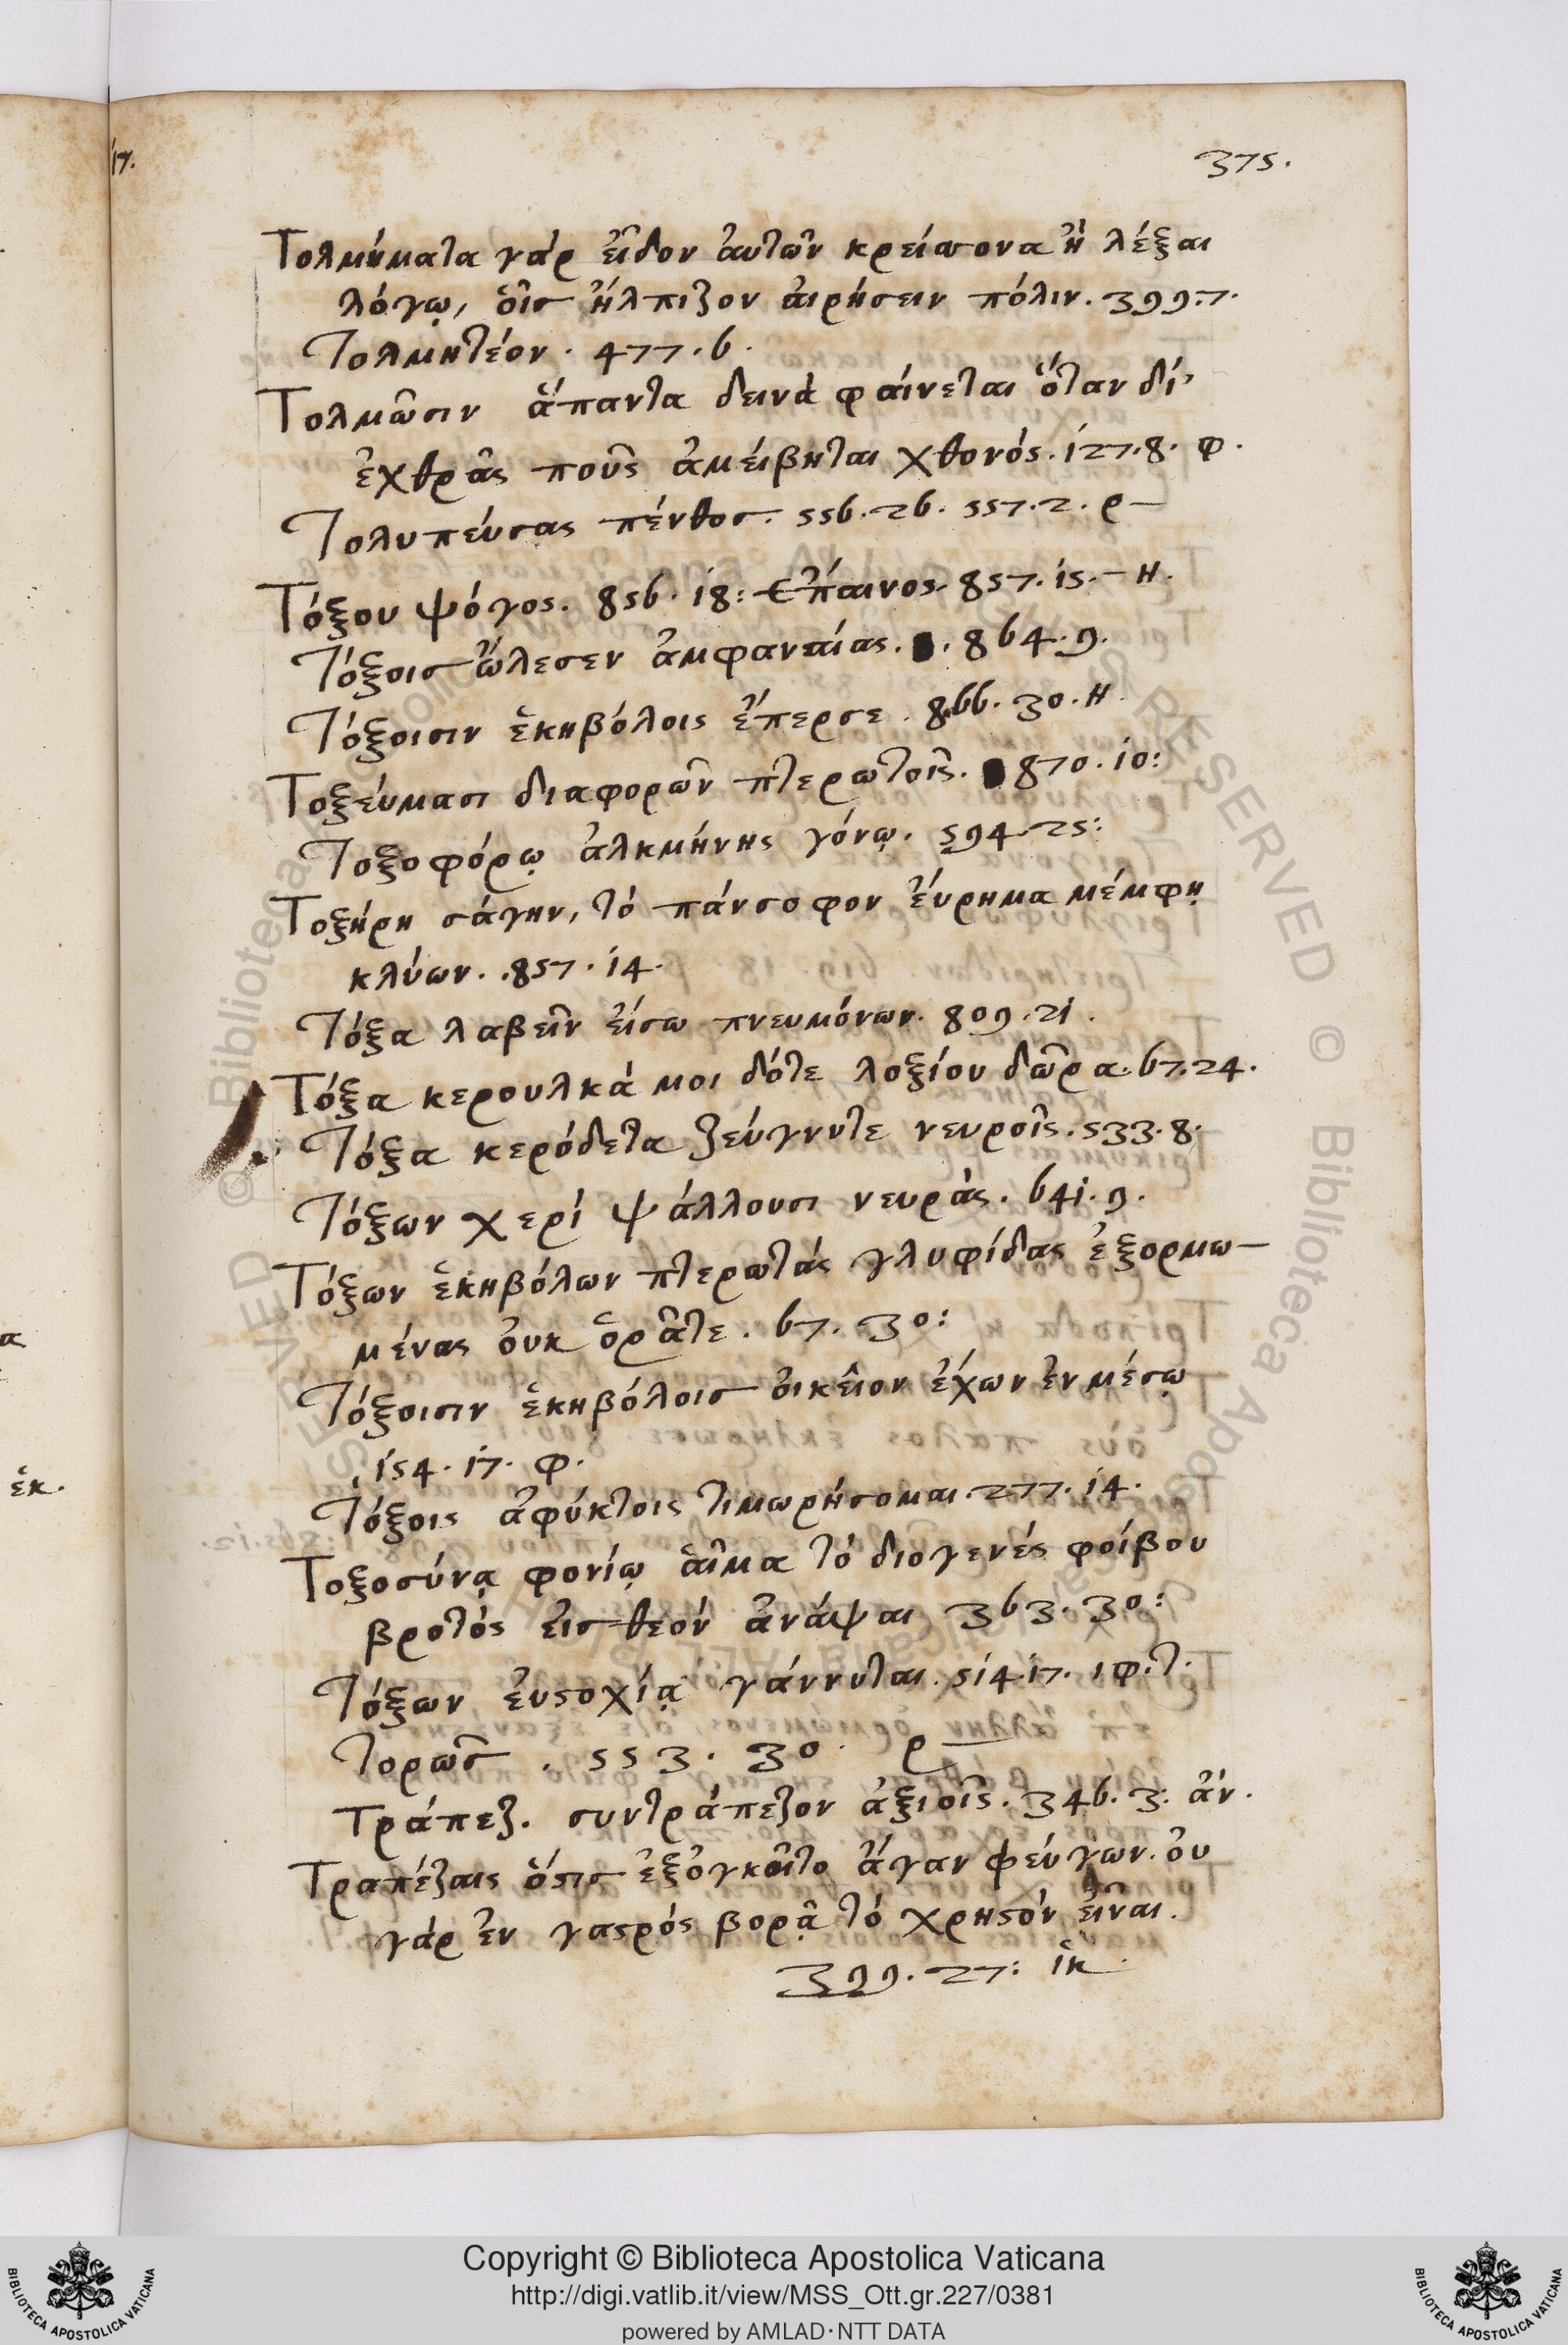 17.
375.
Τολμήματα γάρ εἶδον αὐτῶν κρείσσονα ἢ λέξαι
λόγῳ, οἷς ἤλπιζον αἱρήσειν πόλιν. 399.7.
Τολμητέον. 477.6.
Τολμῶσιν ἅπαντα δεινά φαίνεται ὅταν δι'
ἐχθρᾶς ποῦς ἀμείβηται χθονός. 127.8. φ.
Τολυπεύσας πένθος. 556.26. 557.2. ρ—
Τόξου ψόγος. 856.18: Επαινος. 857.15.— Η.
Τόξοις ὤλεσεν ἀμφαναίας. 864.9.
Τόξοισιν ἑκηβόλοις ἔπερσε. 866.30.Η.
Τοξεύμασι διαφορῶν πτερωτοῖς. 870.10:
Τοξοφόρῳ ἀλκμήνης γόνῳ. 594.25:
Τοξήρη σάγην, τό πάνσοφον εὕρημα μέμφῃ
κλύων. .857.14.
Τόξα λαβεῖν εἴσω πνευμόνων. 809.21.
Τόξα κερουλκά μοι δότε λοξίου δῶρα. 67.24.
Τόξα κερόδετα ζεύγνυτε νευροῖς. 533.8.
Τόξων χερί ψάλλουσι νευράς. 641.9.
Τόξων ἑκηβόλων πτερωτάς γλυφίδας ἐξορμω—
μένας οὐκ ὁρᾶτε. 67.30:
Τόξοισιν ἑκηβόλοις οἰκεῖον ἔχων ἐν μέσῳ
154.17. φ.
Τόξοις ἀφύκτοις τιμωρήσομαι. 277.14.
Τοξοσύνᾳ φονίῳ αἷμα τό διογενές φοίβου
βροτός εἰς θεόν ἀνάψαι 363.30:
Τόξων εὐστοχίᾳ γάννυται. 514.17. ιφ.τ.
τορῶς . 553. 30. ρ—
Τράπεζ. συντράπεζον ἀξιοῖς. 346.3: ἀν.
Τραπέζαις ὅστις ἐξογκοῖτο ἄγαν φεύγων. οὐ
γάρ ἐν γαστρός βορᾷ τό χρηστόν εἶναι.
399.27: ἱκ.
α
ἑκ.
Copyright © Biblioteca Apostolica Vaticana
http://digi.vatlib.it/view/MSS_Ott.gr.227/0381
powered by AMLAD·NTT DATA
BIBLIOTECA APOSTOLICA VATICANA
BIBLIOTECA APOSTOLICA VATICANA